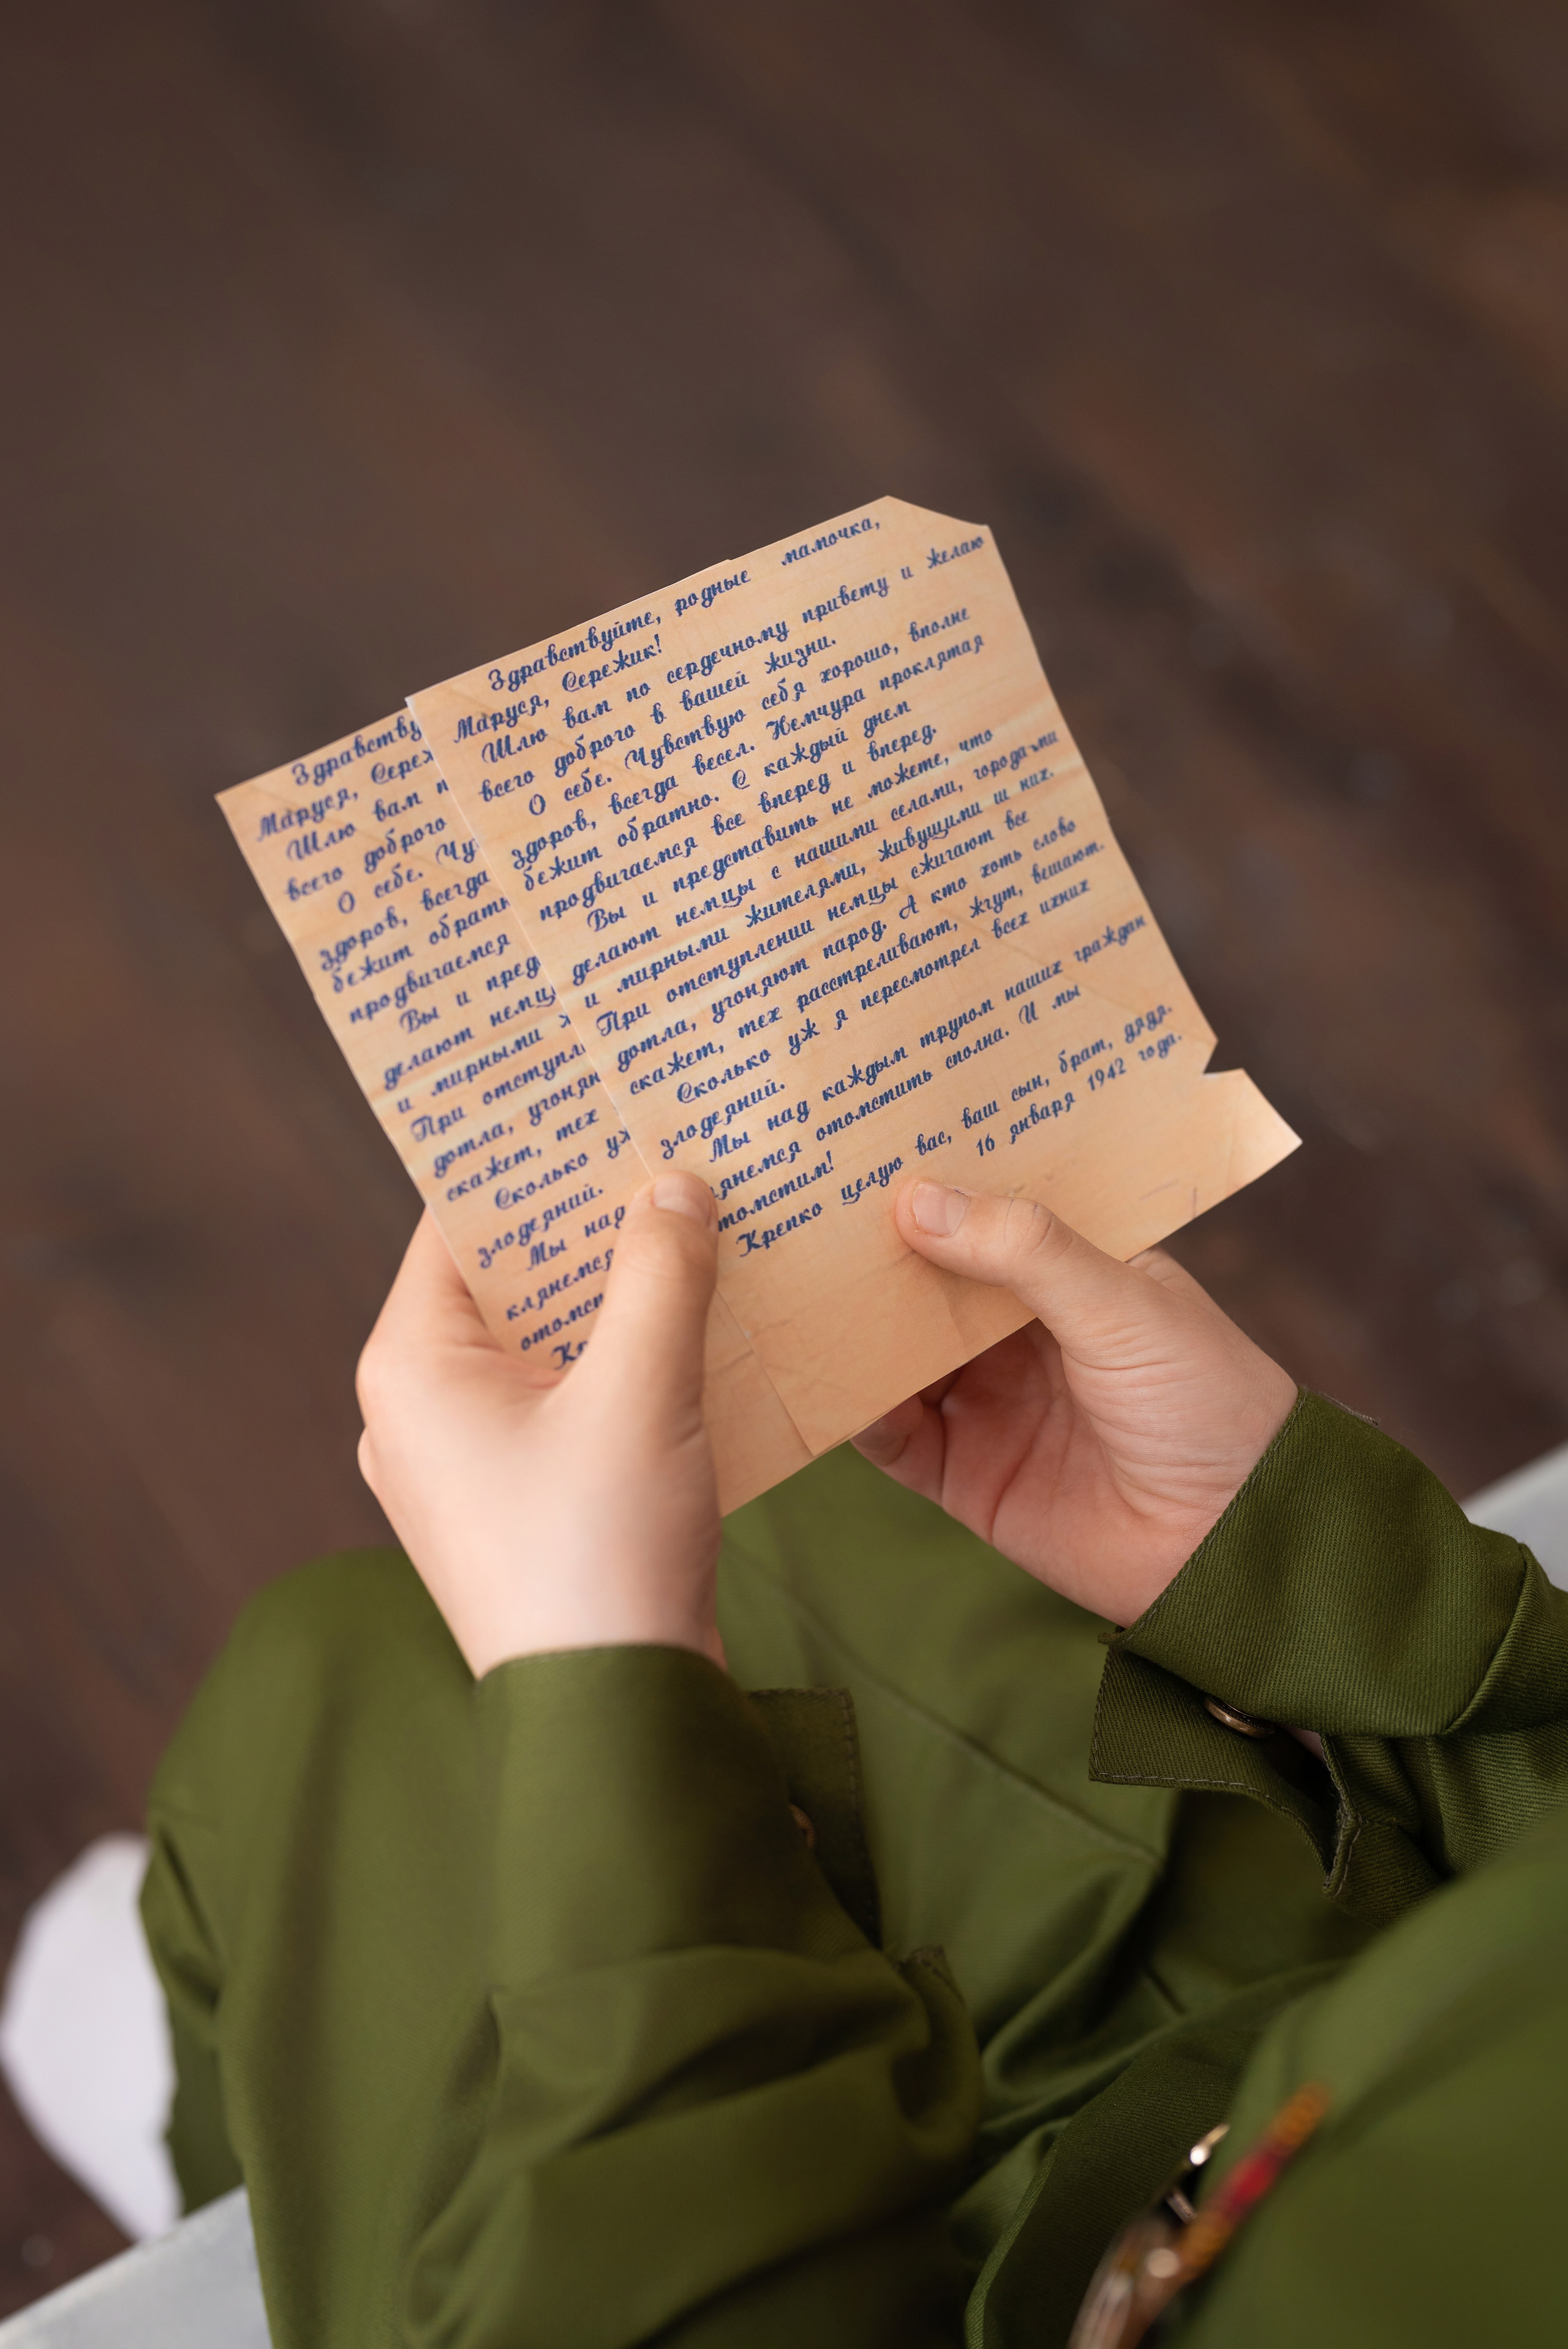 Здравству
Маруся, Сереж
Шлю вам п
всего доброго
О себе. Чу
здоров, всегда
бежит обратн
продвигаемся
Вы и пред
делают немц
и мирными ж
При отступл
дотла, угонян
скажет, тех
Сколько уж
злодеяний.
Мы над
клянемся
отомст
Кр
Здравствуйте, родные мамочка,
Маруся, Сережик!
Шлю вам по сердечному привету и желаю
всего доброго в вашей жизни.
О себе. Чувствую себя хорошо, вполне
здоров, всегда весел. Немчура проклятая
бежит обратно. С каждый днем
продвигаемся все вперед и вперед.
Вы и представить не можете, что
делают немцы с нашими селами, города-ми
и мирными жителями, живущими ш них.
При отступлении немцы сжигают все
дотла, угоняют парод. А кто хоть слово
скажет, тех расстреливают, жгут, вешают.
Сколько уж я пересмотрел всех ихних
злодеяний.
Мы над каждым трупом наших граждан
янемся отомстить сполна. И мы
томстим!
Крепко целую вас, ваш сын, брат, дядя.
16 января 1942 года.